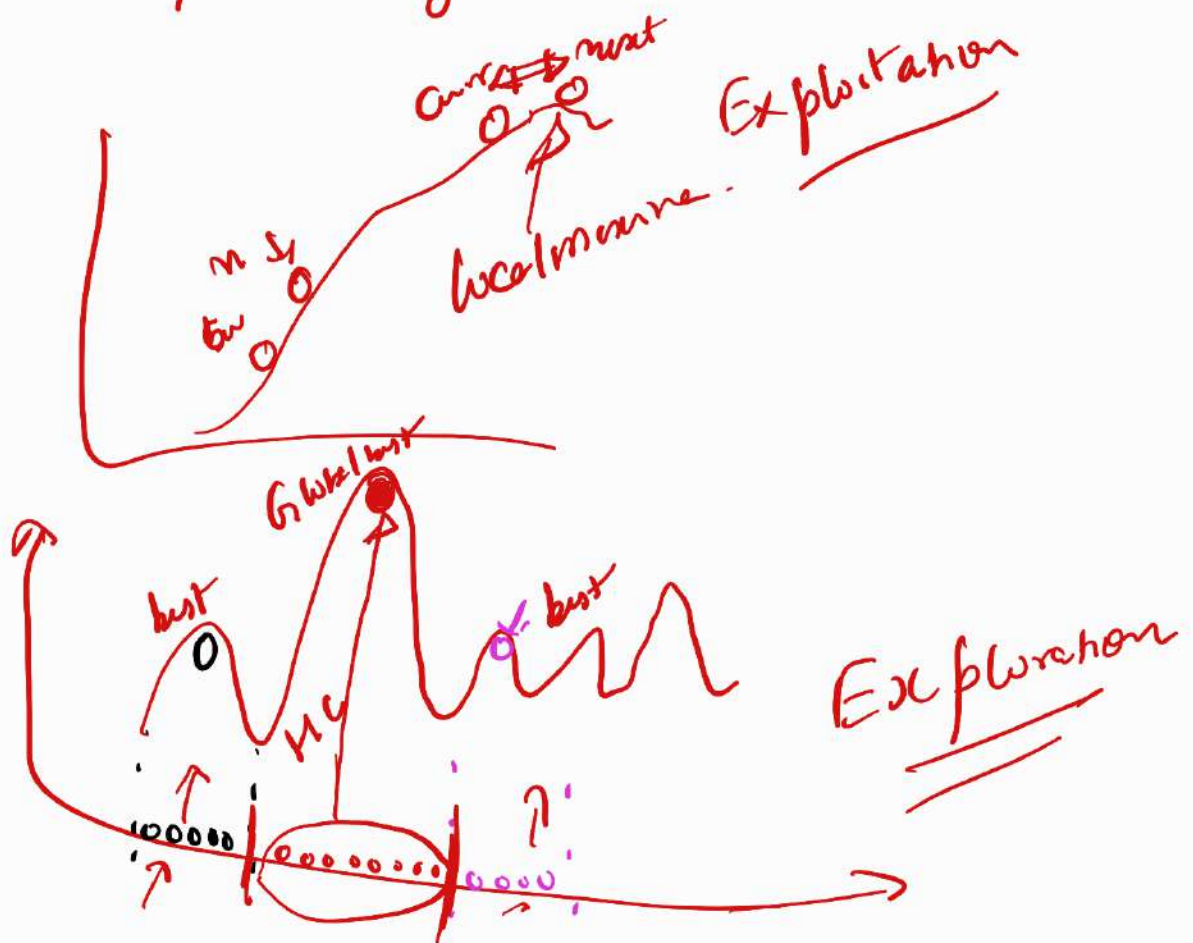 Curr next
Exploitation
n S1
local maxima.
Global best
best
best
HC
Exploration